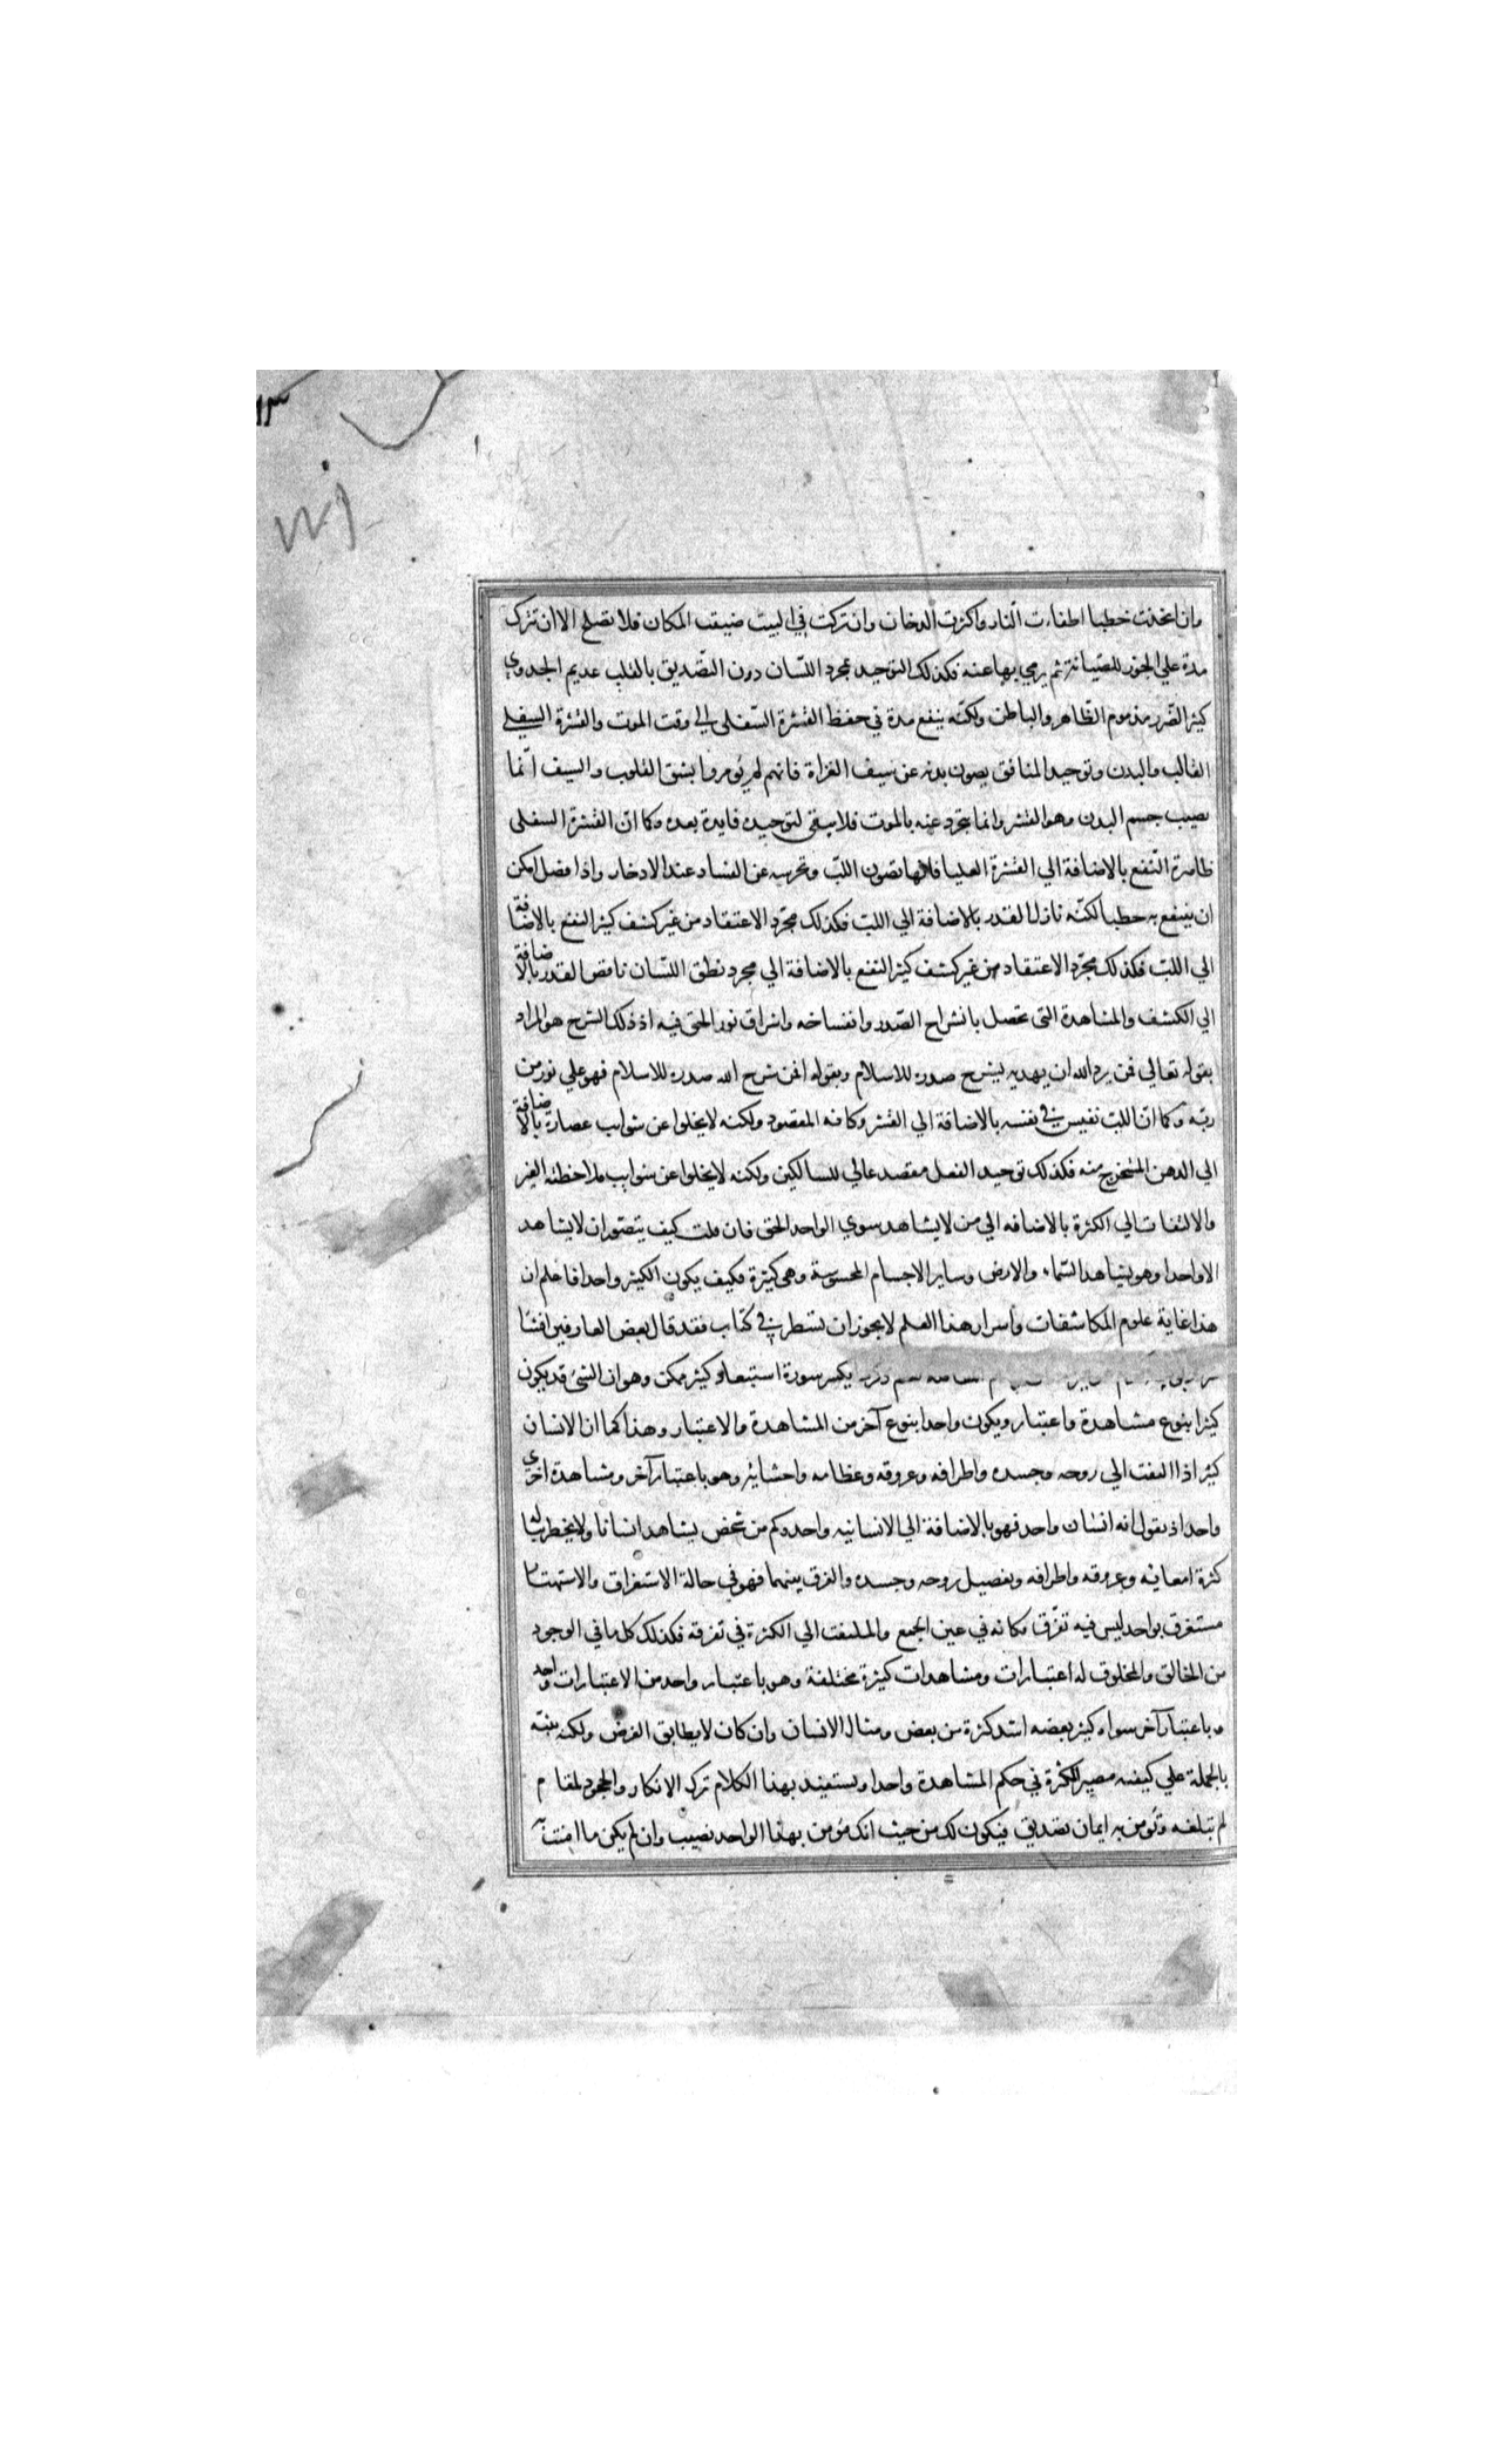 ١٣
وان اتخذت خطبا اطفاءت النار واكثرت الدخان وان تركت في البيت ضيقت المكان فلا تصلح الا ان تترك
مدة علي الجوز للصيانة ثم يرمي بها عنه فكذلك التوحيد بمجرد اللسان دون التصديق بالقلب عديم الجدوي
كثير الضرر مذموم الظاهر والباطن ولكنه ينفع مدة في حفظ القشرة السفلى الي وقت الموت والقشرة السفلي
القالب والبدن وتوحيد المنافق يصون بدنه عن سيف الغزاة فانهم لم يؤمروا بشق القلوب والسيف انما
يصيب جسم البدن وهو القشر وانما يتجرد عنه بالموت فلا يبقى لتوحيده فايدة بعده وكما ان القشرة السفلى
ظاهرة النفع بالاضافة الي القشرة العليا فانها تصون اللب وتحرسه عن الفساد عند الادخار واذا فصل امكن
ان ينتفع به حطبا لكنه نازل القدر بالاضافة الي اللب فكذلك مجرد الاعتقاد من غير كشف كثير النفع بالاضافة
الي اللب فكذلك مجرد الاعتقاد من غير كشف كثير النفع بالاضافة الي مجرد نطق اللسان ناقص القدر بالاضافة
الي الكشف والمشاهدة التي تحصل بانشراح الصدر وانفساخه واشراق نور الحق فيه اذ ذلك الشرح هو المراد
بقوله تعالي فمن يرد الله ان يهديه يشرح صدره للاسلام وبقوله افمن شرح الله صدره للاسلام فهو علي نور من
ربه وكما ان اللب نفيس في نفسه بالاضافة الي القشر وكانه المقصود ولكنه لا يخلوا عن شوايب عصارة بالاضافة
الي الدهن المستخرج منه فكذلك توحيد الفعل مقصد عالي للسالكين ولكنه لا يخلوا عن شوايب ملاحظة الغير
والالتفات الي الكثرة بالاضافه الي من لا يشاهد سوي الواحد الحق فان قلت كيف يتصور ان لا يشاهد
الا واحدا وهو يشاهد السماء والارض وساير الاجسام المحسوسة وهي كثيرة فكيف يكون الكثير واحدا فاعلم ان
هذا غاية علوم المكاشفات واسرار هذا العلم لا يجوز ان تسطر في كتاب فقد قال بعض العارفين افشا
يكسر سورة استبعادك ممكن وهو ان الشئ قد يكون
كثيرا بنوع مشاهدة واعتبار ويكون واحدا بنوع آخر من المشاهدة والاعتبار وهذا كما ان الانسان
كثير اذا التفت الي روحه وجسده واطرافه وعروقه وعظامه واحشائه وهو باعتبار آخر ومشاهدة اخري
واحد اذ نقول انه انسان واحد فهو بالاضافة الي الانسانيه واحد وكم من شخص يشاهد انسانا ولا يخطر بباله
كثرة امعائه وعروقه واطرافه وتفصيل روحه وجسده والفرق بينهما فهو في حالة الاستغراق والاستهتا
مستغرق بواحد ليس فيه تفرق فكانه في عين الجمع والملتفت الي الكثرة في تفرقه فكذلك كل ما في الوجود
من الخالق والمخلوق له اعتبارات ومشاهدات كثيرة مختلفة وهو باعتبار واحد من الاعتبارات واحد
وباعتبار آخر سواه كثير بعضه اشد كثرة من بعض ومثال الانسان وان كان لا يطابق الغرض ولكنه ينبه
بالجملة علي كيفيه مصير الكثرة في حكم المشاهدة واحدا ويستفيد بهذا الكلام ترك الانكار والجحود لمقام
لم تبلغه وتؤمن به ايمان تصديق فيكون لك من حيث انك مؤمن بهذا الواحد نصيب وان لم يكن ما امنت